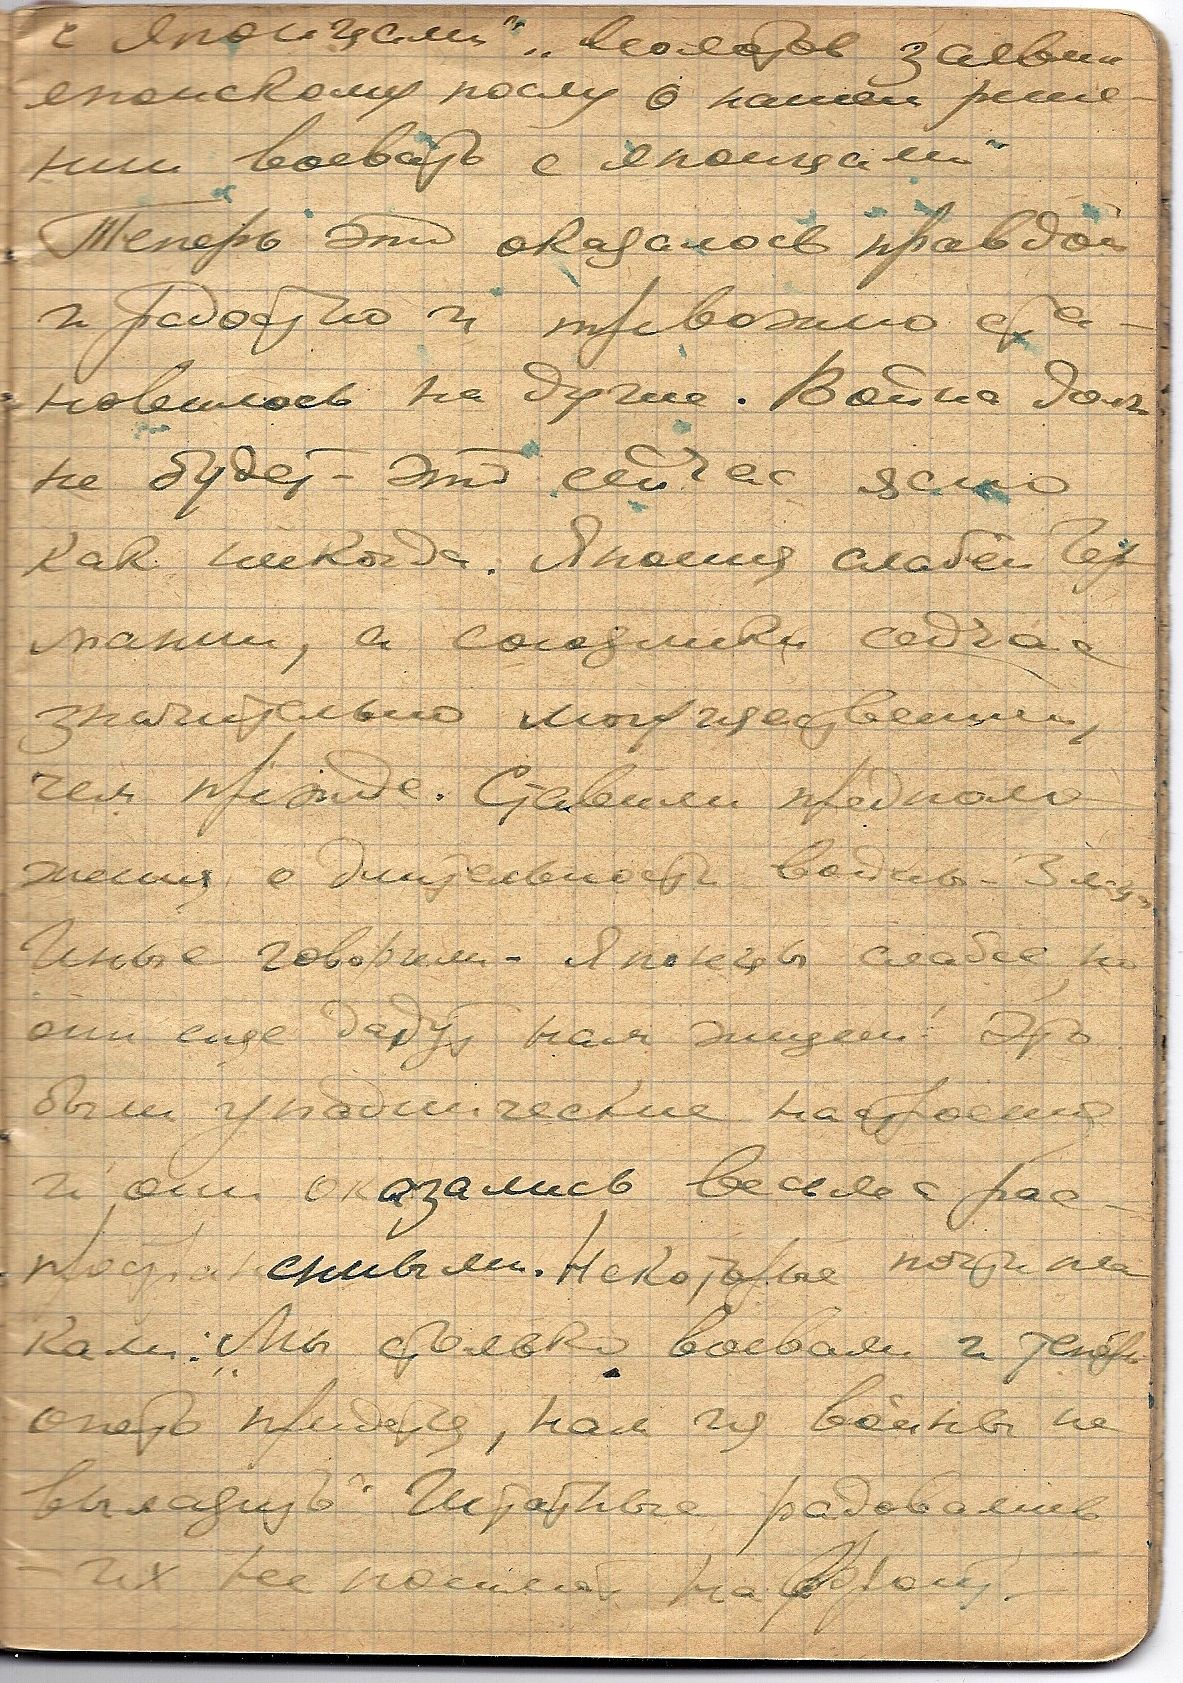 с японцами", "Молотов заявил
японскому послу о нашем реше-
нии воевать с японцами"
Теперь это оказалось правдой
и радостно и тревожно ста-
новилось на душе. Война долг
не будет - это сейчас ясно
как никогда. Япония слабей Гер
мании, а союзники сейчас
значительно могущественней,
чем прежде. Ставили предполо
жения о длительности войны -
Иные говорили - Японцы слабее, но
они еще дадут нам жизни! Это
были упаднические настроения
и они оказались весьма рас-
пространенными. Некоторые почти пла
кали: "Мы столько воевали и теперь
опять придется, нам из войны не
вылазить" Штатные радовались
- их не пошлют на фронт.